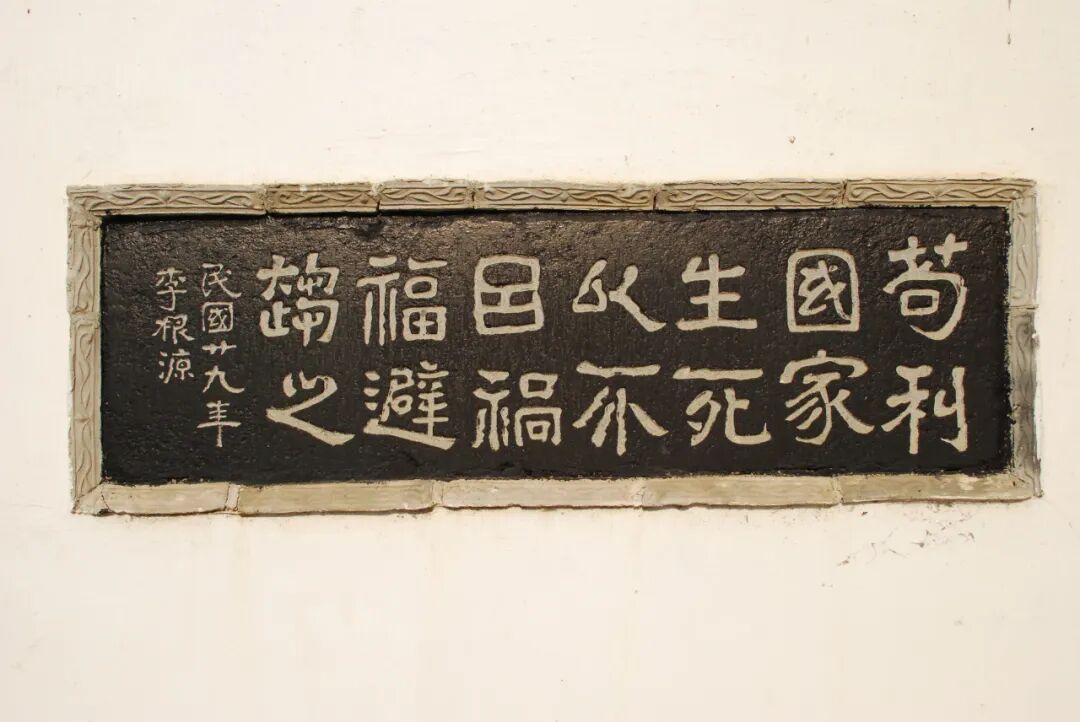 苟利
國家
生死
以不
㠯禍
福避
趨之
民國廿九年
李根源